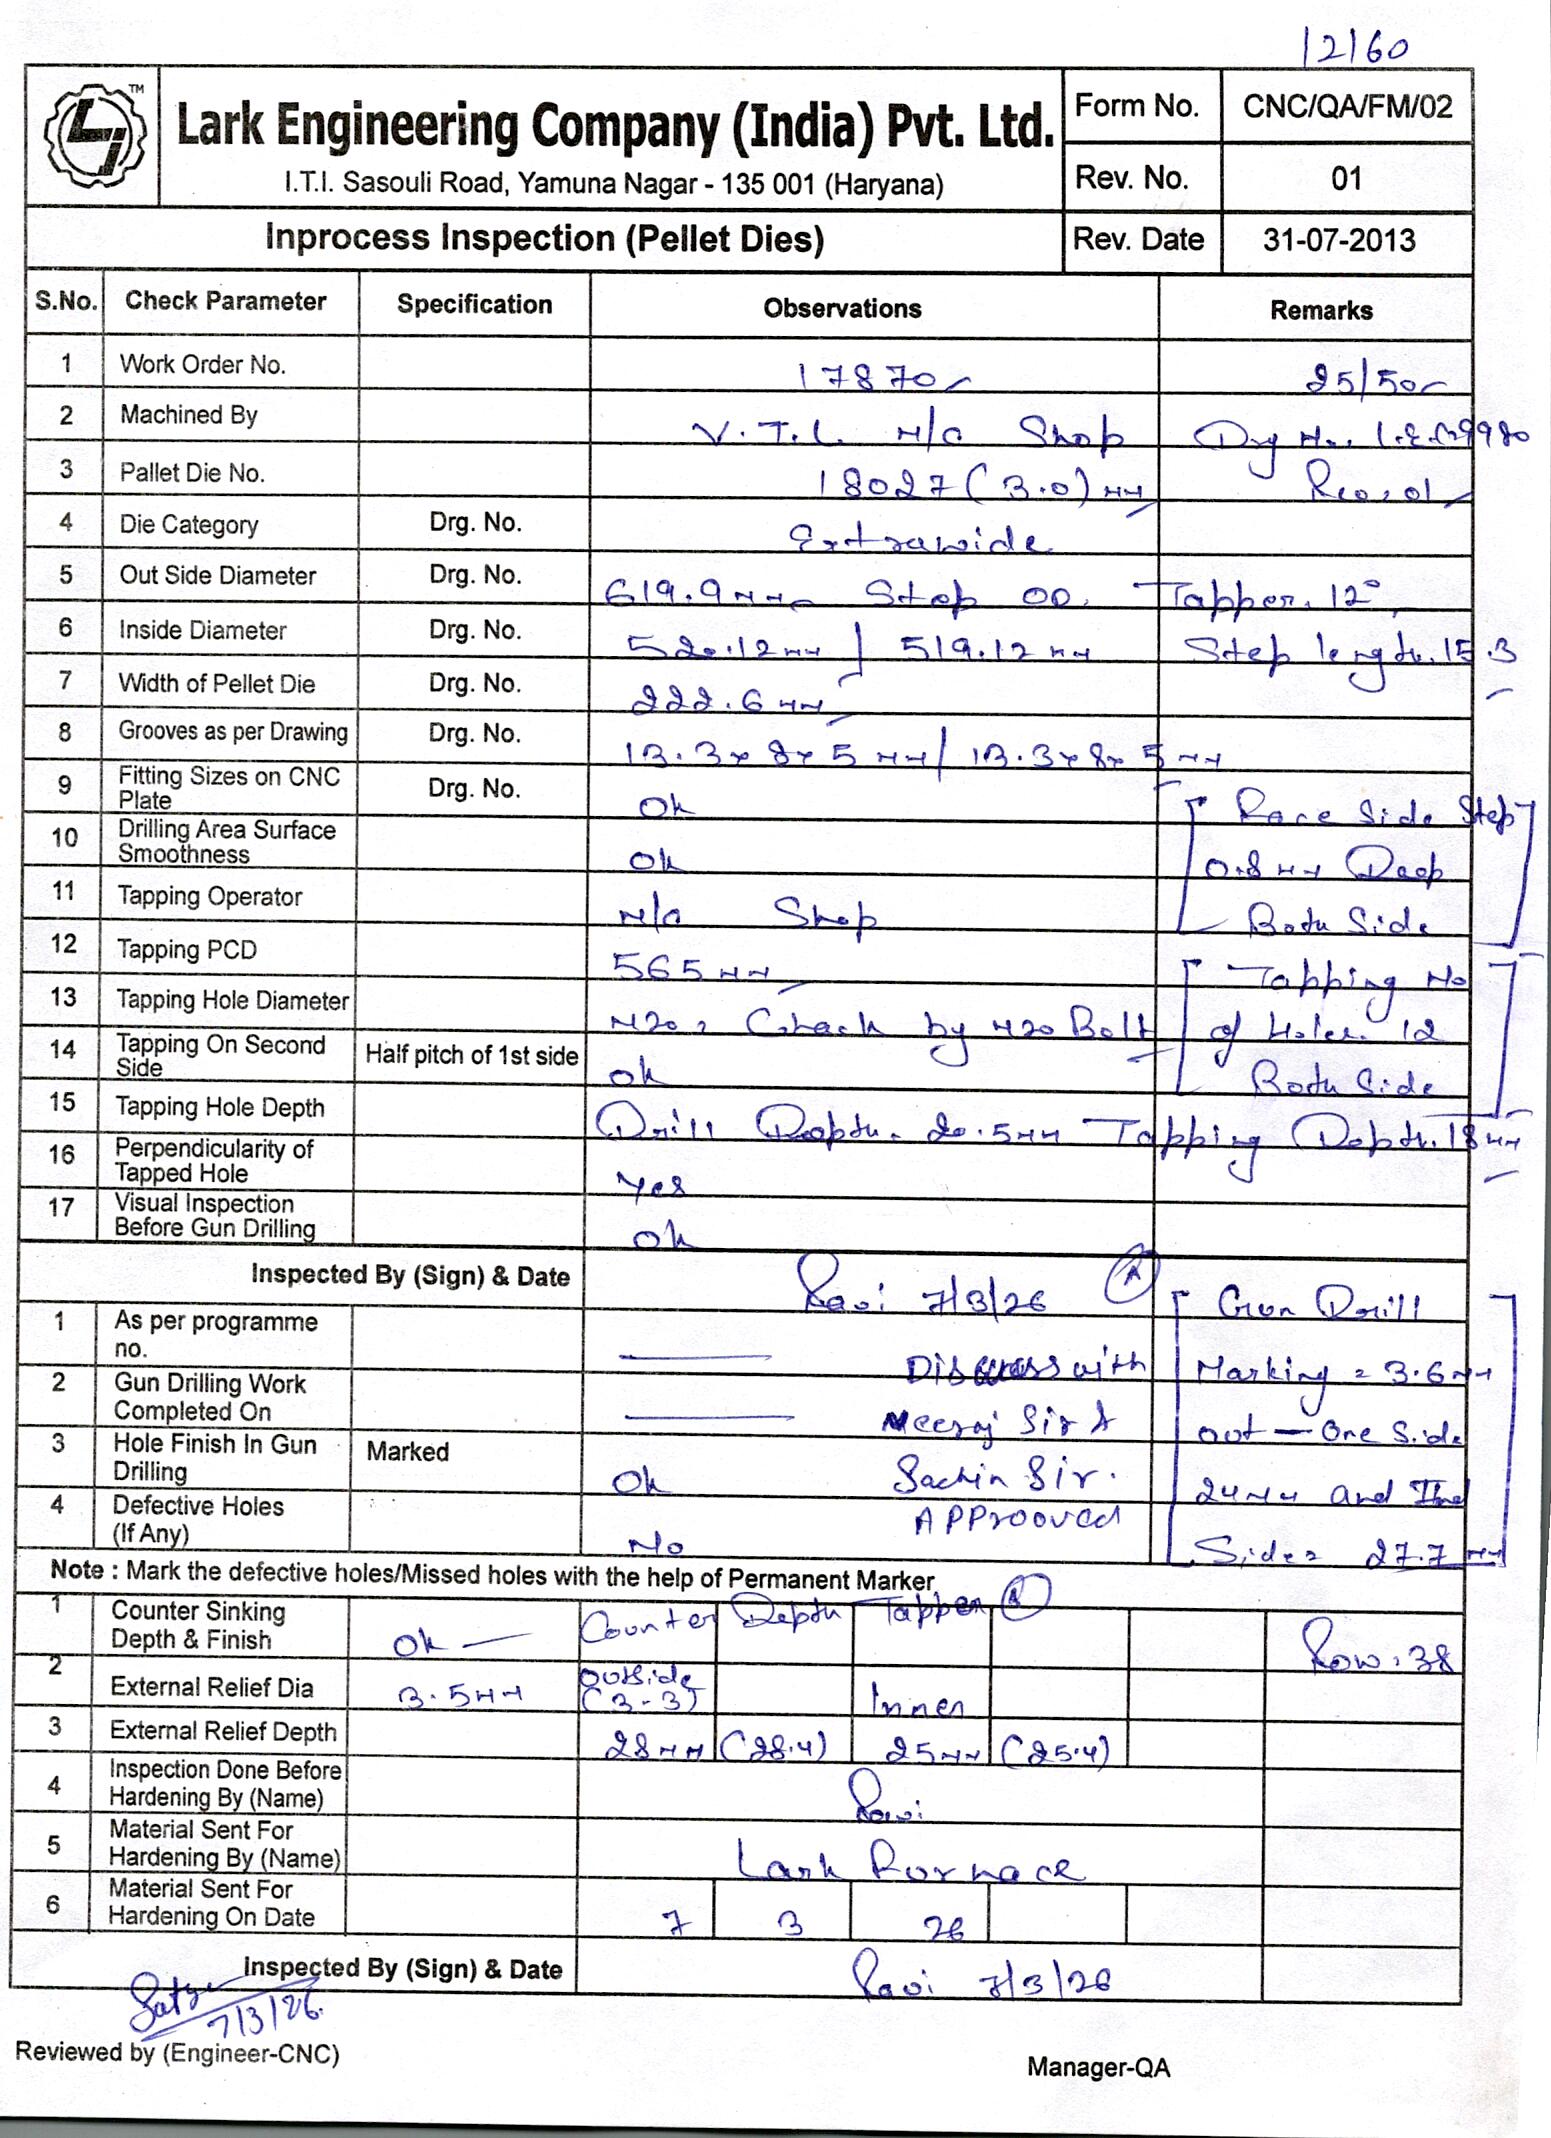 12160
TM
Lark Engineering Company (India) Pvt. Ltd.
I.T.I. Sasouli Road, Yamuna Nagar - 135 001 (Haryana)
Form No. CNC/QA/FM/02
Rev. No. 01
Inprocess Inspection (Pellet Dies) Rev. Date 31-07-2013
S.No. Check Parameter Specification Observations Remarks
1 Work Order No. 17870 25/50
2 Machined By V.T.L. M/C Shop Drg No. 9980
3 Pallet Die No. 18027 (3.0) mm Rev. 01
4 Die Category Drg. No. Extrawide
5 Out Side Diameter Drg. No. 619.9mm Step OD. Tapper. 12°
6 Inside Diameter Drg. No. 520.12mm / 519.12 mm Step length. 15.3
7 Width of Pellet Die Drg. No. 222.6 mm
8 Grooves as per Drawing Drg. No. 13.3x8x5 mm / 13.3x8x5 mm
9 Fitting Sizes on CNC Plate Drg. No. Ok Race Side Step
10 Drilling Area Surface Smoothness Ok 0.8 mm Deep
11 Tapping Operator M/C Shop Both Side
12 Tapping PCD 565 mm Tapping No
13 Tapping Hole Diameter M20 = Check by M20 Bolt of Holes. 12
14 Tapping On Second Side Half pitch of 1st side Ok Both Side
15 Tapping Hole Depth Drill Depth. 20.5mm Tapping Depth. 18mm
16 Perpendicularity of Tapped Hole Yes
17 Visual Inspection Before Gun Drilling Ok
Inspected By (Sign) & Date Ravi 7/3/26 A Gun Drill
1 As per programme no. Discuss with Marking = 3.6mm
2 Gun Drilling Work Completed On Neeraj Sir & out — One Side
3 Hole Finish In Gun Drilling Marked Ok Sachin Sir. 24mm and IInd
4 Defective Holes (If Any) No APProoved Side = 27.7 mm
Note : Mark the defective holes/Missed holes with the help of Permanent Marker
1 Counter Sinking Depth & Finish Ok Counter Depth Tapper A Row. 38
2 External Relief Dia 3.5mm Outside (3-3) Inner
3 External Relief Depth 28mm (28.4) 25mm (25.4)
4 Inspection Done Before Hardening By (Name) Ravi
5 Material Sent For Hardening By (Name) Lark Furnace
6 Material Sent For Hardening On Date 7 3 26
Inspected By (Sign) & Date Ravi 7/3/26
7/3/26.
Reviewed by (Engineer-CNC)
Manager-QA